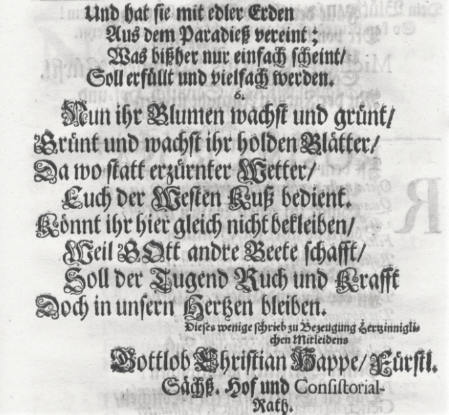 Und hat sie mit edler Erden
Aus dem Paradieß vereint;
Was bißher nur einfach scheint/
Soll erfüllt und vielfach werden.
6.
Nun ihr Blumen wachst und grünt/
Grünt und wachst ihr holden Blätter/
Da wo statt erzürnter Wetter/
Euch der Westen Kuß bedient.
Könnt ihr hier gleich nicht bekleiben/
Weil GOtt andre Beete schafft/
Soll der Tugend Ruch und Krafft
Doch in unsern Hertzen bleiben.
Dieses wenige schrieb zu Bezeugung hertzinnigli-
chen Mitleidens
Gottlob Christian Happe/ Fürstl.
Sächß. Hof und Consistorial-
Rath.